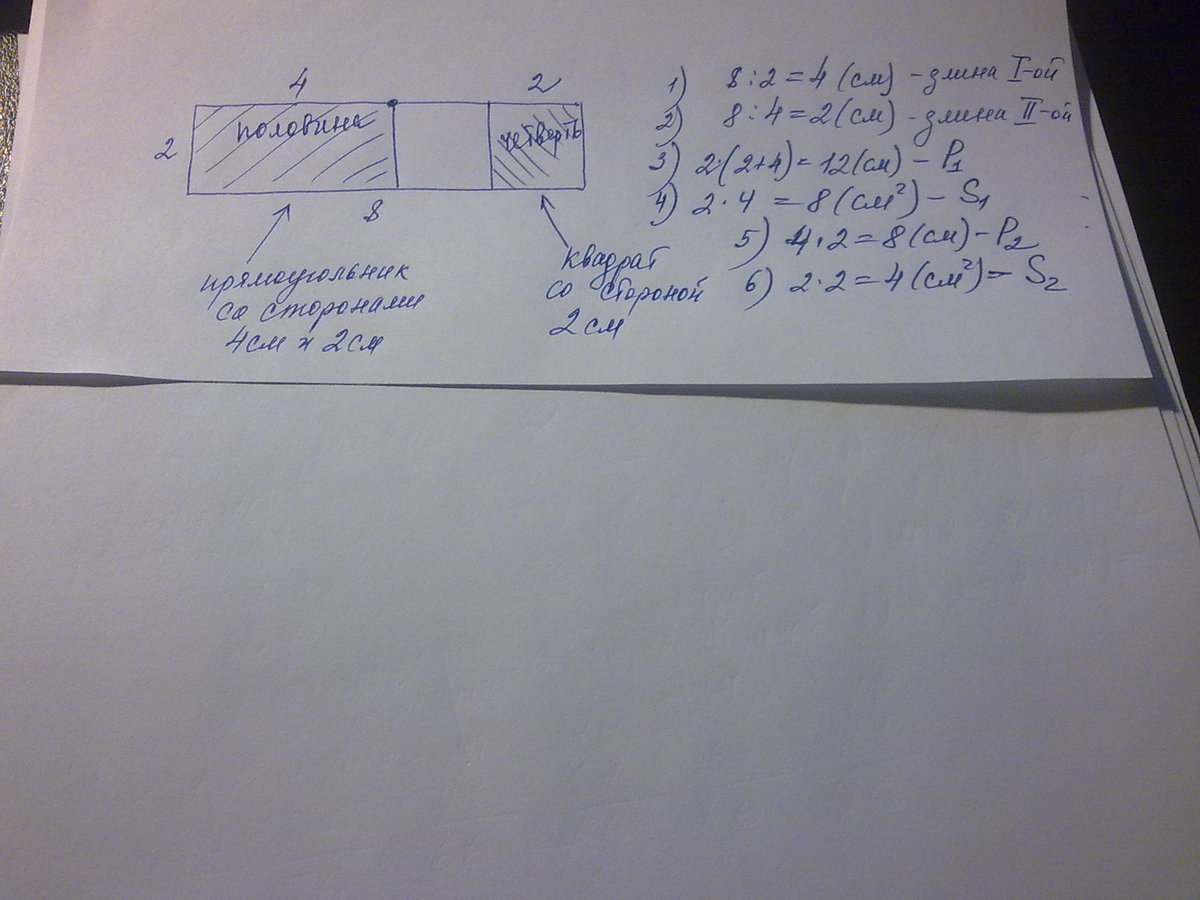 4
2
половина
четверть
2
8
прямоугольник
со сторонами
4см и 2см
квадрат
со стороной
2см
1) 8:2=4(см) - длина I-ой
2) 8:4=2(см) - длина II-ой
3) 2·(2+4)=12(см) - P₁
4) 2·4=8(см²) - S₁
5) 4·2=8(см) - P₂
6) 2·2=4(см²) - S₂